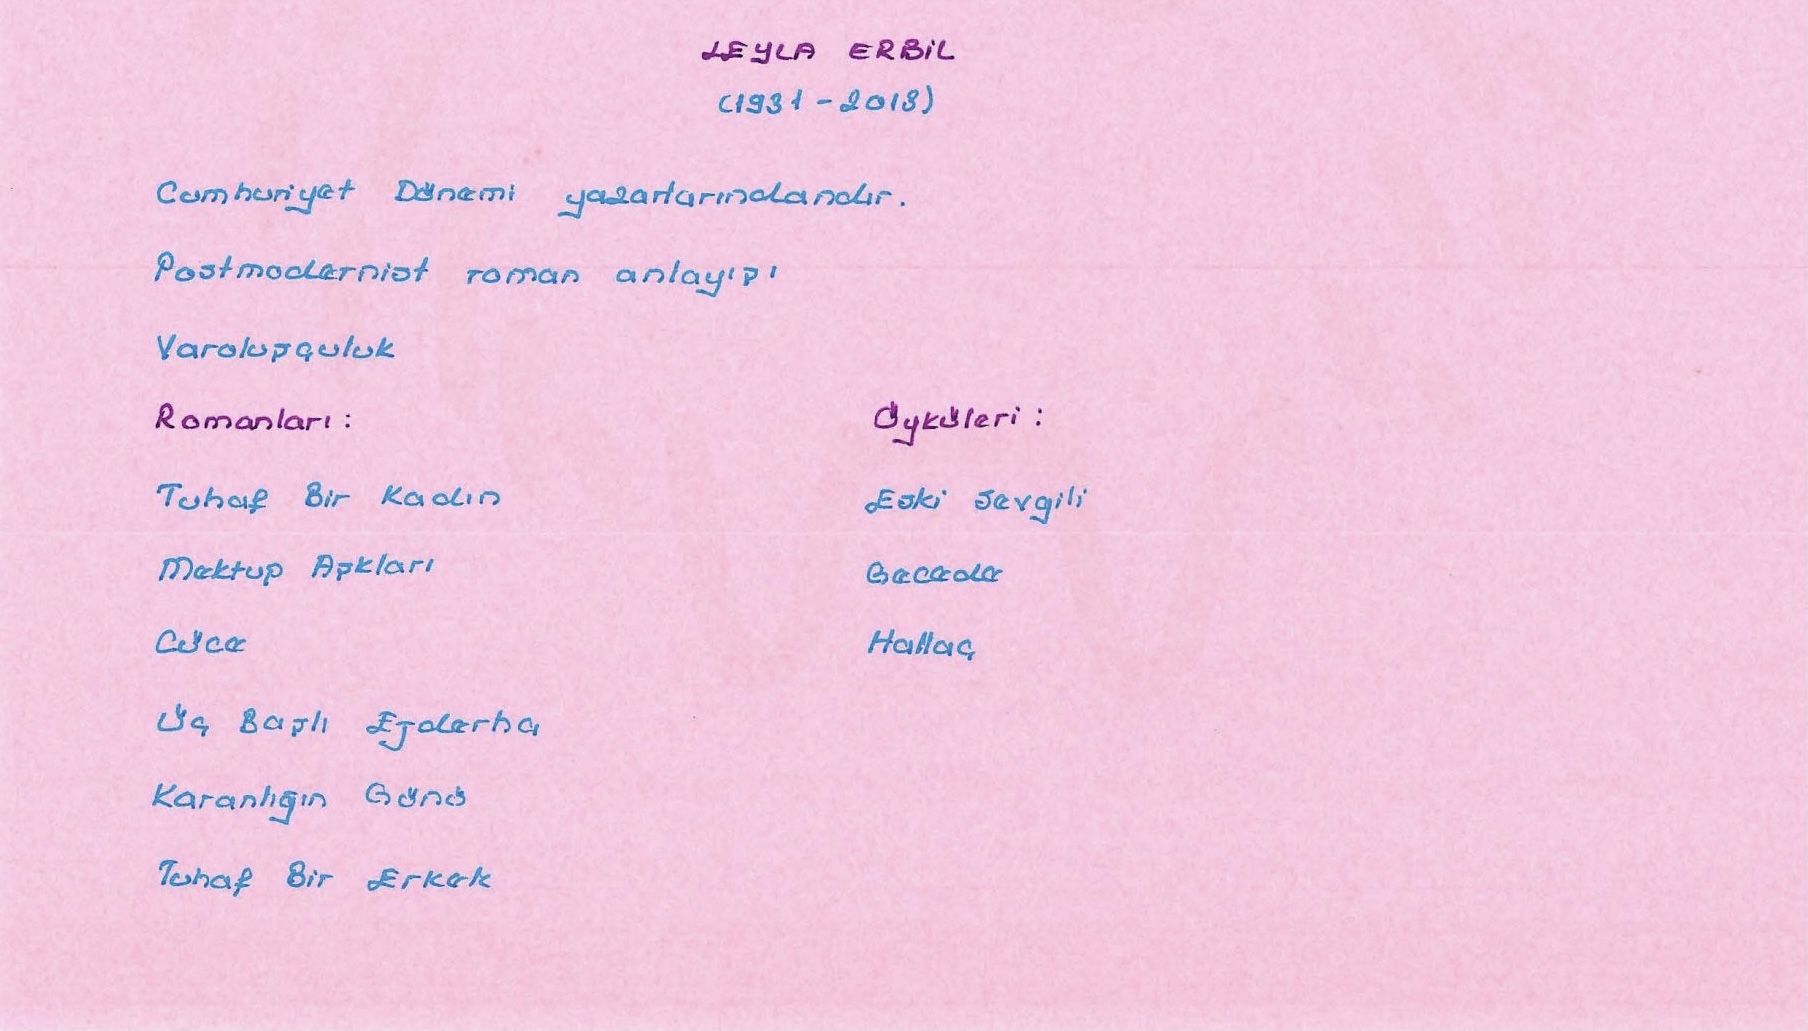 LEYLA ERBİL
(1931-2013)
Cumhuriyet Dönemi yazarlarındandır.
Postmodernist roman anlayışı
Varoluşçuluk
Romanları:
Tuhaf Bir Kadın
Mektup Aşkları
Cüce
Üç Başlı Ejderha
Karanlığın Günü
Tuhaf Bir Erkek
Öyküleri:
Eski Sevgili
Gecede
Hallaç